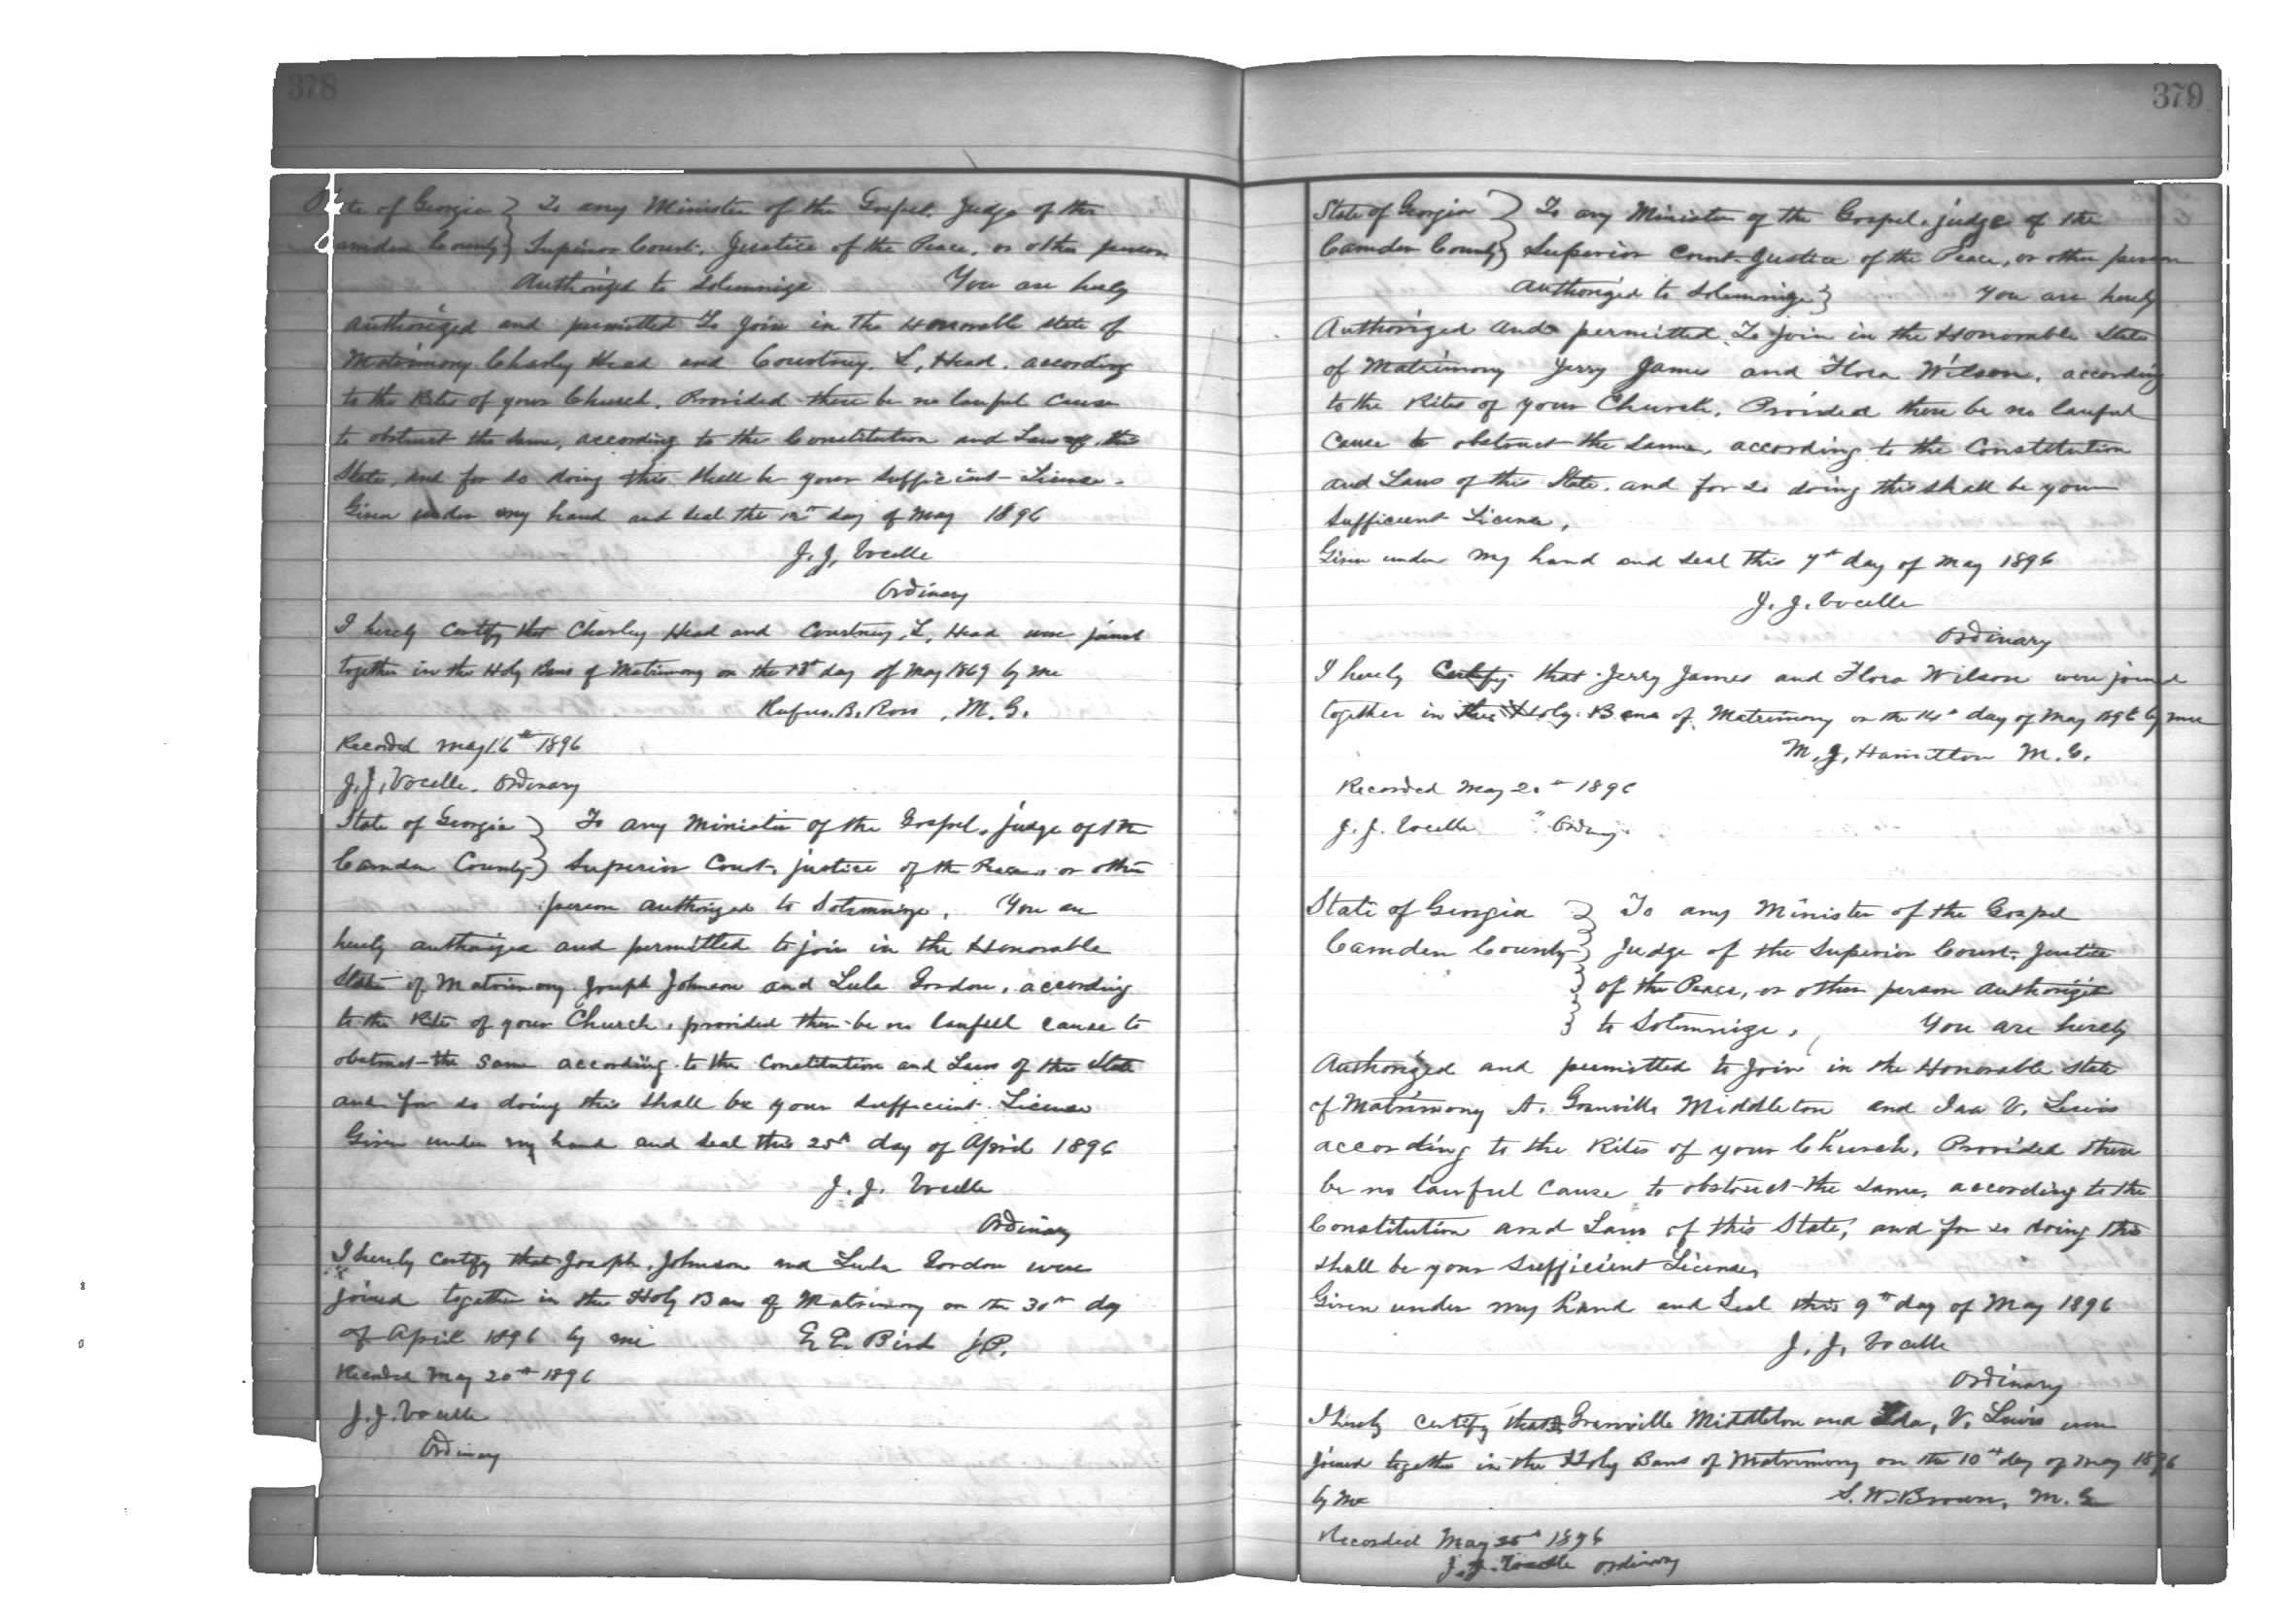 378
State of Georgia } To any Minister of the Gospel, Judge of the
Camden County } Superior Court, Justice of the Peace, or other person
Authorized to Solemnize You are herely
authorized and permitted To join in the Honorable state of
Matrimony Charley Head and Courtney. L, Head. according
to the Rites of your Church. Provided there be no lawful cause
to obstruct the same, according to the Constitution and Laws of this
State, and for so doing this shall be your sufficient License.
Given under my hand and seal the day of May 1896
J. J, Vocelle
Ordinary
I herely certify that Charley Head and Courtney, L, Head were joined
together in the Holy Bans of Matrimony on the day of May 1869 by me
Rufus. B. Ross , M. G.
Recorded May 16th 1896
J. J, Vocelle. Ordinary
State of Georgia } To any Minister of the Gospel, judge of the
Camden County } Superior Court, justice of the Peace or other
person authorized to Solemnize, You are
herely authorized and permitted to join in the Honorable
State of Matrimony Joseph Johnson and Lula Gordon, according
to the Rites of your Church, provided there be no lawfull cause to
obstruct the same according to the Constitution and Laws of this State
and for so doing this shall be your sufficient License
Given under my hand and seal this 25th day of April 1896
J. J. Vocelle
Ordinary
I herely certify that Joseph Johnson and Lula Gordon were
joined together in the Holy Bans of Matrimony on the 30th day
of April 1896 by me E. E. Bird J.P.
Recorded May 20th 1896
J. J. Vocelle
Ordinary
379
State of Georgia } To any Minister of the Gospel. judge of the
Camden County } Superior Court Justice of the Peace, or other person
authorized to Solemnize } You are herely
Authorized and permitted To join in the Honorable State
of Matrimony Jerry James and Flora Wilson, according
to the Rites of your Church, Provided there be no lawful
cause to obstruct the same, according to the Constitution
and Laws of this State. and for so doing this shall be your
sufficient License,
Given under my hand and seal this 7th day of May 1896
J. J. Vocelle
Ordinary
I herely Certify that Jerry James and Flora Wilson were joined
together in the Holy Bans of Matrimony on the 14th day of May 1896 by me
M. J, Hamilton M. G.
Recorded May 20th 1896
J. J. Vocelle Ordinary
State of Georgia } To any Minister of the Gospel
Camden County } Judge of the Superior Court, Justice
of the Peace, or other person Authorized
to Solemnize, You are herely
Authorized and permitted to join in the Honorable state
of Matrimony A. Granville Middleton and Ida V. Lewis
according to the Rites of your Church, Provided there
be no lawful cause to obstruct the same, according to the
Constitution and Laws of this State, and for so doing this
shall be your sufficient License,
Given under my hand and Seal this 9th day of May 1896
J. J, Vocelle
Ordinary
I herely certify that Granville Middleton and Ida, V. Lewis were
joined together in the Holy Bans of Matrimony on the 10th day of May 1896
by me S. W. Brown, M. G
Recorded May 1896
J. J. Vocelle Ordinary